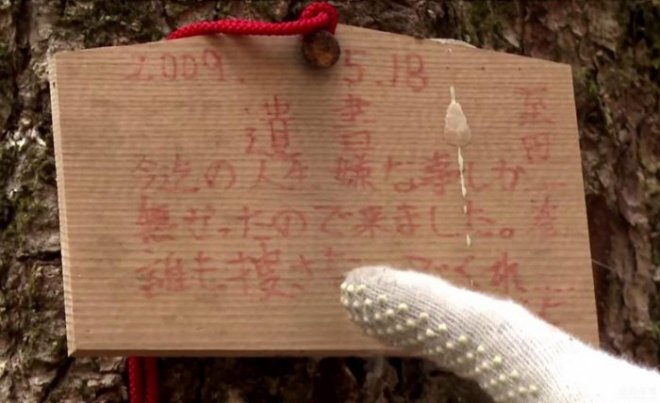 2009. 5.18
遺書
今迄の人生嫌な事しか
無かったので来ました。
誰も捜さ でくれ